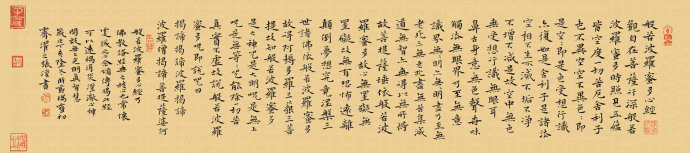 般若波羅蜜多心經
觀自在菩薩行深般若
波羅蜜多時照見五蘊
皆空度一切苦厄舍利子
色不異空空不異色色即
是空空即是色受想行識
亦復如是舍利子是諸法
空相不生不滅不垢不淨
不增不減是故空中無色
無受想行識無眼耳
鼻舌身意無色聲香味
觸法無眼界乃至無意
識界無無明亦無無明盡乃至無
老死亦無老死盡無苦集滅
道無智亦無得以無所得
故菩提薩埵依般若波
羅蜜多故心無罣礙無
罣礙故無有恐怖遠離
顛倒夢想究竟涅槃三
世諸佛依般若波羅蜜多
故得阿耨多羅三藐三菩
提故知般若波羅蜜多
是大神咒是大明咒是無上
咒是無等等咒能除一切苦
真實不虛故說般若波羅
蜜多咒即說咒曰
揭諦揭諦波羅揭諦
波羅僧揭諦菩提薩婆訶
般若波羅蜜多心經乃